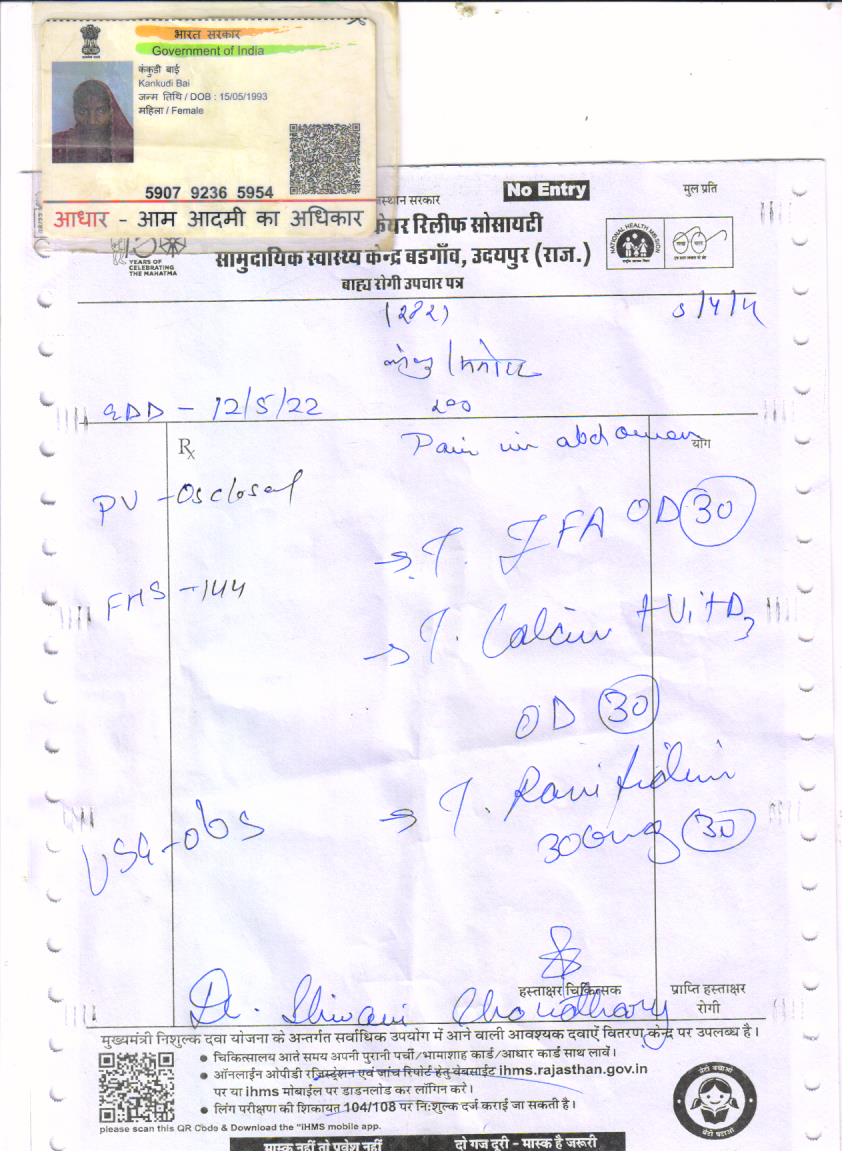 भारत सरकार
Government of India
कंकुडी बाई
Kankudi Bai
जन्म तिथि / DOB : 15/05/1993
महिला / Female
5907 9236 5954
आधार - आम आदमी का अधिकार
No Entry
मुल प्रति
रिलीफ सोसायटी
सामुदायिक स्वास्थ्य केन्द्र बडगाँव, उदयपुर (राज.)
YEARS OF
CELEBRATING
THE MAHATMA
NATIONAL HEALTH MISSION
बाह्य रोगी उपचार पत्र
(282)
EDD - 12/5/22
Rx
Pain in abdomen
योग
PV - Os closed
→ T. IFA OD 30
FHS - 144
→ T. Calcium + Vit D3
OD 30
→ T. Ranitidin
300mg 30
USG - obs
हस्ताक्षर चिकित्सक
प्राप्ति हस्ताक्षर
रोगी
Dr. Shivani Choudhary
मुख्यमंत्री निशुल्क दवा योजना के अन्तर्गत सर्वाधिक उपयोग में आने वाली आवश्यक दवाऐं वितरण केन्द्र पर उपलब्ध है।
• चिकित्सालय आते समय अपनी पुरानी पर्ची/भामाशाह कार्ड/आधार कार्ड साथ लावें।
• ऑनलाईन ओपीडी रजिस्ट्रेशन एवं जांच रिपोर्ट हेतु वेबसाईट ihms.rajasthan.gov.in
पर या ihms मोबाईल पर डाडनलोड कर लॉगिन करे।
• लिंग परीक्षण की शिकायत 104/108 पर नि:शुल्क दर्ज कराई जा सकती है।
please scan this QR Code & Download the "iHMS mobile app.
बेटी बचाओ
बेटी पढ़ाओ
मास्क नहीं तो प्रवेश नहीं
दो गज दूरी - मास्क है जरूरी